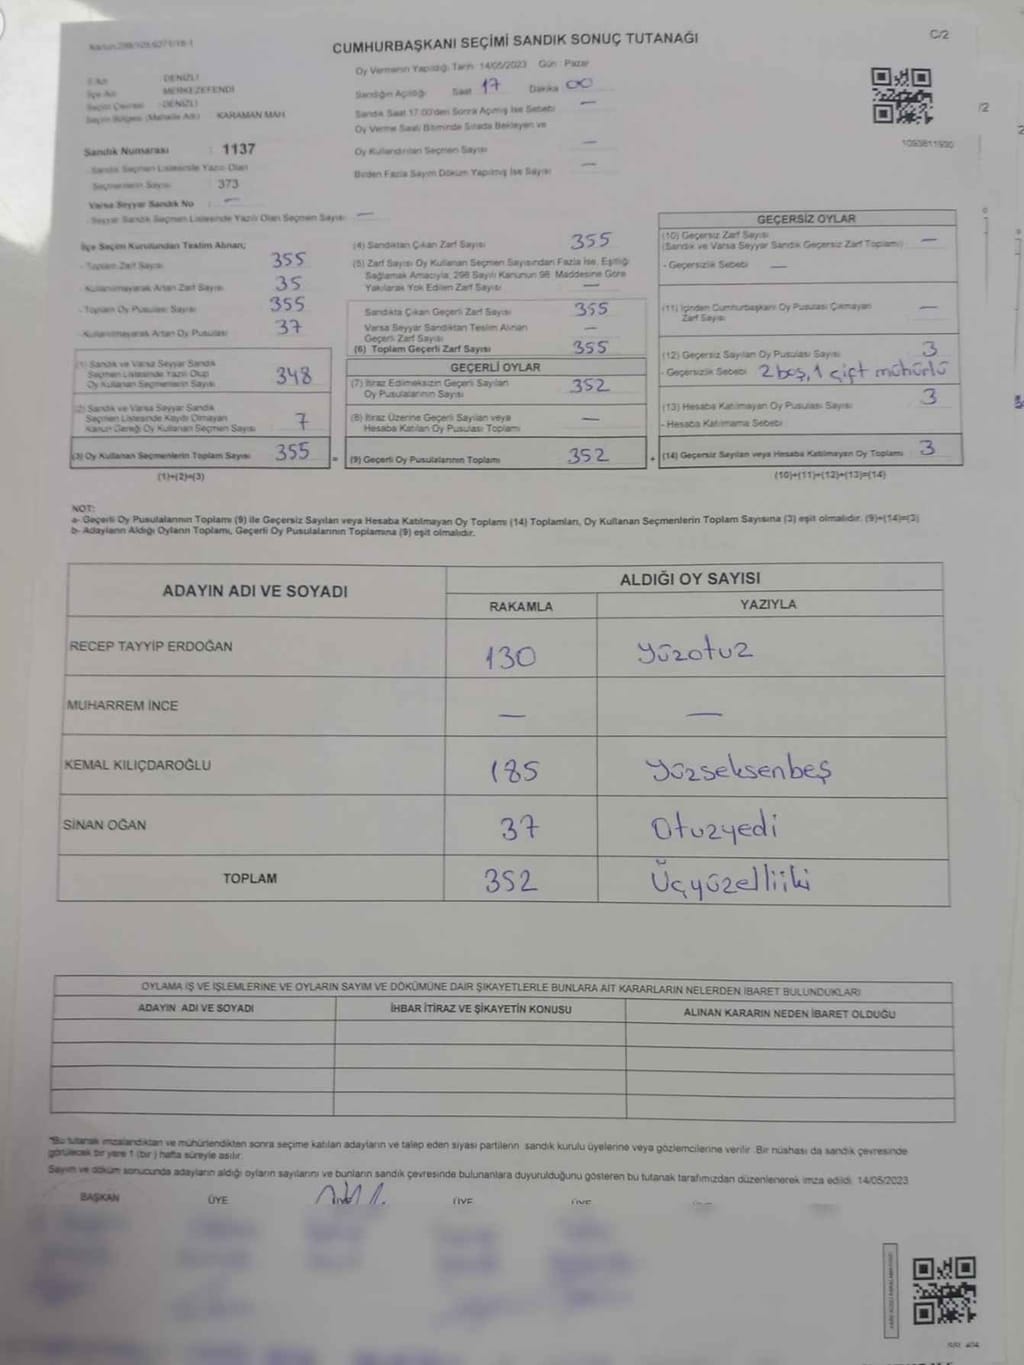 CUMHURBAŞKANI SEÇİMİ SANDIK SONUÇ TUTANAĞI
C/2
Oy Vermenin Yapıldığı Tarih: 14/05/2023 Gün: Pazar
DENİZLİ
İlçe Adı MERKEZEFENDİ
Seçim Çevresi : DENİZLİ
Seçim Bölgesi (Mahalle Adı) KARAMAN MAH.
Sandığın Açıldığı Saat 17 Dakika 00
Sandık Saat 17.00'den Sonra Açılmış İse Sebebi —
Oy Verme Saati Bitiminde Sırada Bekleyen ve
Oy Kullandırılan Seçmen Sayısı —
Birden Fazla Sayım Döküm Yapılmış İse Sayısı —
1093811930
/2
Sandık Numarası : 1137
Sandık Seçmen Listesinde Yazılı Olan
Seçmenlerin Sayısı : 373
Varsa Seyyar Sandık No : —
- Seyyar Sandık Seçmen Listesinde Yazılı Olan Seçmen Sayısı: —
İlçe Seçim Kurulundan Teslim Alınan;
- Toplam Zarf Sayısı 355
- Kullanılmayarak Artan Zarf Sayısı 35
- Toplam Oy Pusulası Sayısı 355
- Kullanılmayarak Artan Oy Pusulası 37
(1) Sandık ve Varsa Seyyar Sandık
Seçmen Listesinde Yazılı Olup
Oy Kullanan Seçmenlerin Sayısı 348
(2) Sandık ve Varsa Seyyar Sandık
Seçmen Listesinde Kayıtlı Olmayan
Kanun Gereği Oy Kullanan Seçmen Sayısı 7
(3) Oy Kullanan Seçmenlerin Toplam Sayısı 355 =
(1)+(2)=(3)
(4) Sandıktan Çıkan Zarf Sayısı 355
(5) Zarf Sayısı Oy Kullanan Seçmen Sayısından Fazla İse, Eşitliği
Sağlamak Amacıyla, 298 Sayılı Kanunun 98. Maddesine Göre
Yakılarak Yok Edilen Zarf Sayısı —
Sandıkta Çıkan Geçerli Zarf Sayısı 355
Varsa Seyyar Sandıktan Teslim Alınan
Geçerli Zarf Sayısı —
(6) Toplam Geçerli Zarf Sayısı 355
GEÇERLİ OYLAR
(7) İtiraz Edilmeksizin Geçerli Sayılan
Oy Pusulalarının Sayısı 352
(8) İtiraz Üzerine Geçerli Sayılan veya
Hesaba Katılan Oy Pusulası Toplamı —
(9) Geçerli Oy Pusulalarının Toplamı 352 +
GEÇERSİZ OYLAR
(10) Geçersiz Zarf Sayısı
(Sandık ve Varsa Seyyar Sandık Geçersiz Zarf Toplamı) —
- Geçersizlik Sebebi —
(11) İçinden Cumhurbaşkanı Oy Pusulası Çıkmayan
Zarf Sayısı —
(12) Geçersiz Sayılan Oy Pusulası Sayısı 3
- Geçersizlik Sebebi 2 boş, 1 çift mühürlü
(13) Hesaba Katılmayan Oy Pusulası Sayısı 3
- Hesaba Katılmama Sebebi
(14) Geçersiz Sayılan veya Hesaba Katılmayan Oy Toplamı 3
(10)+(11)+(12)+(13)=(14)
NOT:
a- Geçerli Oy Pusulalarının Toplamı (9) ile Geçersiz Sayılan veya Hesaba Katılmayan Oy Toplamı (14) Toplamları, Oy Kullanan Seçmenlerin Toplam Sayısına (3) eşit olmalıdır. (9)+(14)=(3)
b- Adayların Aldığı Oyların Toplamı, Geçerli Oy Pusulalarının Toplamına (9) eşit olmalıdır.
ADAYIN ADI VE SOYADI
ALDIĞI OY SAYISI
RAKAMLA YAZIYLA
RECEP TAYYİP ERDOĞAN 130 Yüzotuz
MUHARREM İNCE — —
KEMAL KILIÇDAROĞLU 185 Yüzseksenbeş
SİNAN OĞAN 37 Otuzyedi
TOPLAM 352 Üçyüzelliiki
OYLAMA İŞ VE İŞLEMLERİNE VE OYLARIN SAYIM VE DÖKÜMÜNE DAİR ŞİKAYETLERLE BUNLARA AİT KARARLARIN NELERDEN İBARET BULUNDUKLARI
ADAYIN ADI VE SOYADI İHBAR İTİRAZ VE ŞİKAYETİN KONUSU ALINAN KARARIN NEDEN İBARET OLDUĞU
*Bu tutanak imzalandıktan ve mühürlendikten sonra seçime katılan adayların ve talep eden siyasi partilerin sandık kurulu üyelerine veya gözlemcilerine verilir. Bir nüshası da sandık çevresinde
görülecek bir yere 1 (bir) hafta süreyle asılır.
Sayım ve döküm sonucunda adayların aldığı oyların sayılarını ve bunların sandık çevresinde bulunanlara duyurulduğunu gösteren bu tutanak tarafımızdan düzenlenerek imza edildi. 14/05/2023
BAŞKAN ÜYE ÜYE ÜYE ÜYE